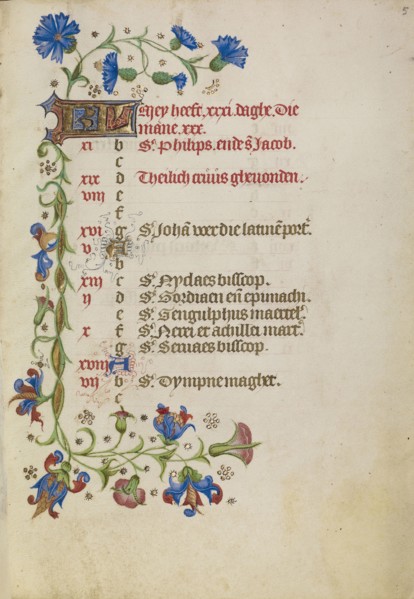 5
KL Mey heeft .xxxi. daghe. Die
mane .xxx.
xi b Ste Philips. ende s̄ Jacob.
c
xix d Theilich cruus ghevonden.
viii e
f
xvi g St Johā voer die latiinē port.
v A
b
xiii c St Nyclaes bisscop.
ii d St Gordiaen eñ epimachi.
e St Gengulphus maertel.
x f St Nerei et achillei mart.
g St Servaes bisscop.
xviii A
vii b St Dympne maghet.
c